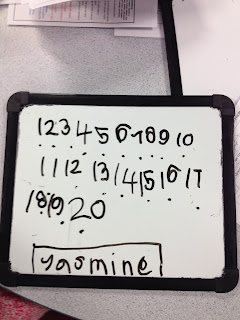 1 2 3 4 5 6 7 8 9 10
11 12 13 14 15 16 17
18 19 20
yasmine